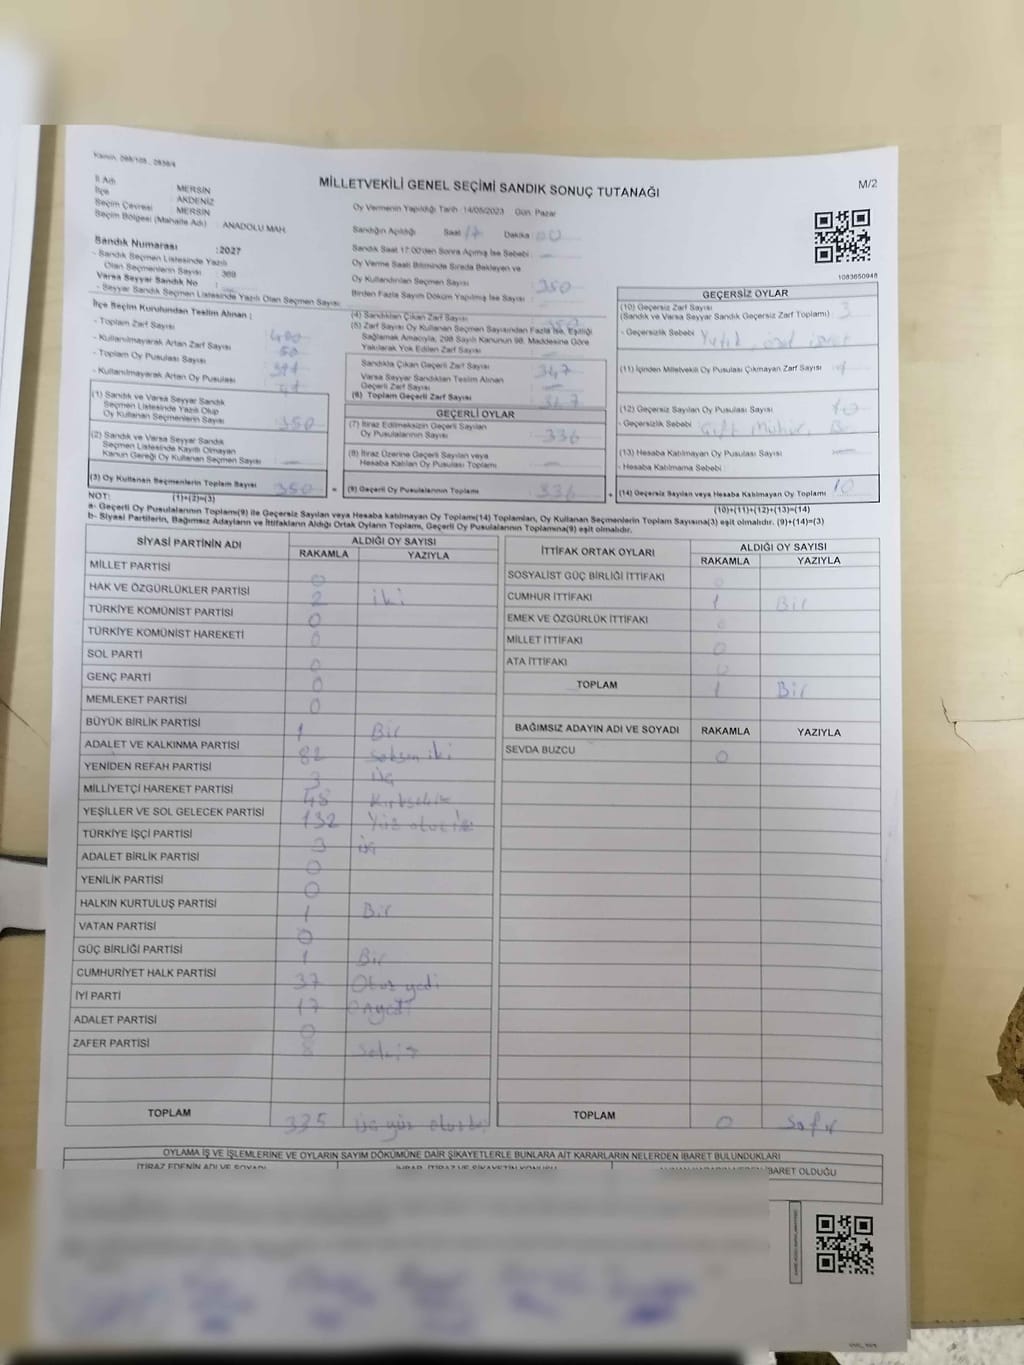 MİLLETVEKİLİ GENEL SEÇİMİ SANDIK SONUÇ TUTANAĞI
M/2
İl Adı : MERSİN
İlçe : AKDENİZ
Seçim Çevresi : MERSİN
Seçim Bölgesi (Mahalle Adı) : ANADOLU MAH.
Oy Vermenin Yapıldığı Tarih :14/05/2023 Gün: Pazar
Sandığın Açıldığı Saat 17 Dakika 00
Sandık Numarası :2027
- Sandık Seçmen Listesinde Yazılı
Olan Seçmenlerin Sayısı : 389
Varsa Seyyar Sandık No :
- Seyyar Sandık Seçmen Listesinde Yazılı Olan Seçmen Sayısı:
Sandık Saat 17:00'den Sonra Açımış İse Sebebi :
Oy Verme Saati Bitiminde Sırada Bekleyen ve
Oy Kullandırılan Seçmen Sayısı : 350
Birden Fazla Sayım Döküm Yapılmış İse Sayısı :
1083650948
İlçe Seçim Kurulundan Teslim Alınan :
- Toplam Zarf Sayısı : 400
- Kullanılmayarak Artan Zarf Sayısı : 50
- Toplam Oy Pusulası Sayısı : 391
- Kullanılmayarak Artan Oy Pusulası : 41
(1) Sandık ve Varsa Seyyar Sandık
Seçmen Listesinde Yazılı Olup
Oy Kullanan Seçmenlerin Sayısı : 350
(2) Sandık ve Varsa Seyyar Sandık
Seçmen Listesinde Kayıtlı Olmayan
Kanun Gereği Oy Kullanan Seçmen Sayısı :
(3) Oy Kullanan Seçmenlerin Toplam Sayısı : 350
(1)+(2)=(3)
(4) Sandıktan Çıkan Zarf Sayısı : 350
(5) Zarf Sayısı Oy Kullanan Seçmen Sayısından Fazla İse, Eşitliği
Sağlamak Amacıyla, 298 Sayılı Kanunun 98. Maddesine Göre
Yakılarak Yok Edilen Zarf Sayısı :
Sandıkta Çıkan Geçerli Zarf Sayısı : 347
Varsa Seyyar Sandıktan Teslim Alınan
Geçerli Zarf Sayısı :
(6) Toplam Geçerli Zarf Sayısı : 347
GEÇERLİ OYLAR
(7) İtiraz Edilmeksizin Geçerli Sayılan
Oy Pusulalarının Sayısı : 336
(8) İtiraz Üzerine Geçerli Sayılan veya
Hesaba Katılan Oy Pusulası Toplamı :
(9) Geçerli Oy Pusulalarının Toplamı : 336
GEÇERSİZ OYLAR
(10) Geçersiz Zarf Sayısı : 3
(Sandık ve Varsa Seyyar Sandık Geçersiz Zarf Toplamı)
- Geçersizlik Sebebi :
(11) İçinden Milletvekili Oy Pusulası Çıkmayan Zarf Sayısı :
(12) Geçersiz Sayılan Oy Pusulası Sayısı : 10
- Geçersizlik Sebebi : Çift Mühür,
(13) Hesaba Katılmayan Oy Pusulası Sayısı :
- Hesaba Katılmama Sebebi :
(14) Geçersiz Sayılan veya Hesaba Katılmayan Oy Toplamı : 10
(10)+(11)+(12)+(13)=(14)
NOT:
a- Geçerli Oy Pusulalarının Toplamı(9) ile Geçersiz Sayılan veya Hesaba Katılmayan Oy Toplamı(14) Toplamları, Oy Kullanan Seçmenlerin Toplam Sayısına(3) eşit olmalıdır. (9)+(14)=(3)
b- Siyasi Partilerin, Bağımsız Adayların ve İttifakların Aldığı Ortak Oyların Toplamı, Geçerli Oy Pusulalarının Toplamına(9) eşit olmalıdır.
SİYASİ PARTİNİN ADI ALDIĞI OY SAYISI
RAKAMLA YAZIYLA
MİLLET PARTİSİ 0
HAK VE ÖZGÜRLÜKLER PARTİSİ 2 iki
TÜRKİYE KOMÜNİST PARTİSİ 0
TÜRKİYE KOMÜNİST HAREKETİ 0
SOL PARTİ 0
GENÇ PARTİ 0
MEMLEKET PARTİSİ 0
BÜYÜK BİRLİK PARTİSİ 1 Bir
ADALET VE KALKINMA PARTİSİ 82 Seksen iki
YENİDEN REFAH PARTİSİ 3 üç
MİLLİYETÇİ HAREKET PARTİSİ 48 Kırksekiz
YEŞİLLER VE SOL GELECEK PARTİSİ 132 Yüz otuz iki
TÜRKİYE İŞÇİ PARTİSİ 3 üç
ADALET BİRLİK PARTİSİ 0
YENİLİK PARTİSİ 0
HALKIN KURTULUŞ PARTİSİ 1 Bir
VATAN PARTİSİ 0
GÜÇ BİRLİĞİ PARTİSİ 1 Bir
CUMHURİYET HALK PARTİSİ 37 Otuz yedi
İYİ PARTİ 17 Onyedi
ADALET PARTİSİ 0
ZAFER PARTİSİ 8 Sekiz
TOPLAM 335
İTTİFAK ORTAK OYLARI ALDIĞI OY SAYISI
RAKAMLA YAZIYLA
SOSYALİST GÜÇ BİRLİĞİ İTTİFAKI 0
CUMHUR İTTİFAKI 1 Bir
EMEK VE ÖZGÜRLÜK İTTİFAKI 0
MİLLET İTTİFAKI 0
ATA İTTİFAKI 0
TOPLAM 1 Bir
BAĞIMSIZ ADAYIN ADI VE SOYADI RAKAMLA YAZIYLA
SEVDA BUZCU 0
TOPLAM 0 Sıfır
OYLAMA İŞ VE İŞLEMLERİNE VE OYLARIN SAYIM DÖKÜMÜNE DAİR ŞİKAYETLERLE BUNLARA AİT KARARLARIN NELERDEN İBARET BULUNDUKLARI
İTİRAZ EDENİN ADI VE SOYADI
İBARET OLDUĞU